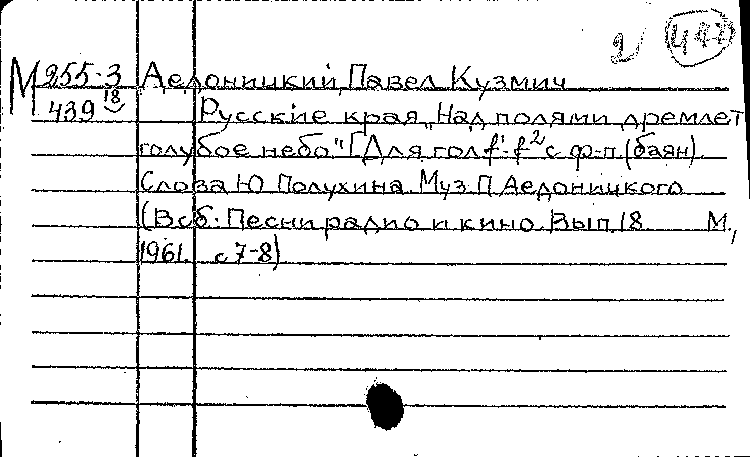 2 442
М 255-3 Аедоницкий, Павел Кузмич
439 18 Русские края „Над полями дремлет
голубое небо" [Для гол f¹-f² с ф-п. (баян)
Слова Ю Полухина Муз П Аедоницкого
(В сб: Песни радио и кино. Вып 18 М.,
1961. с 7-8)